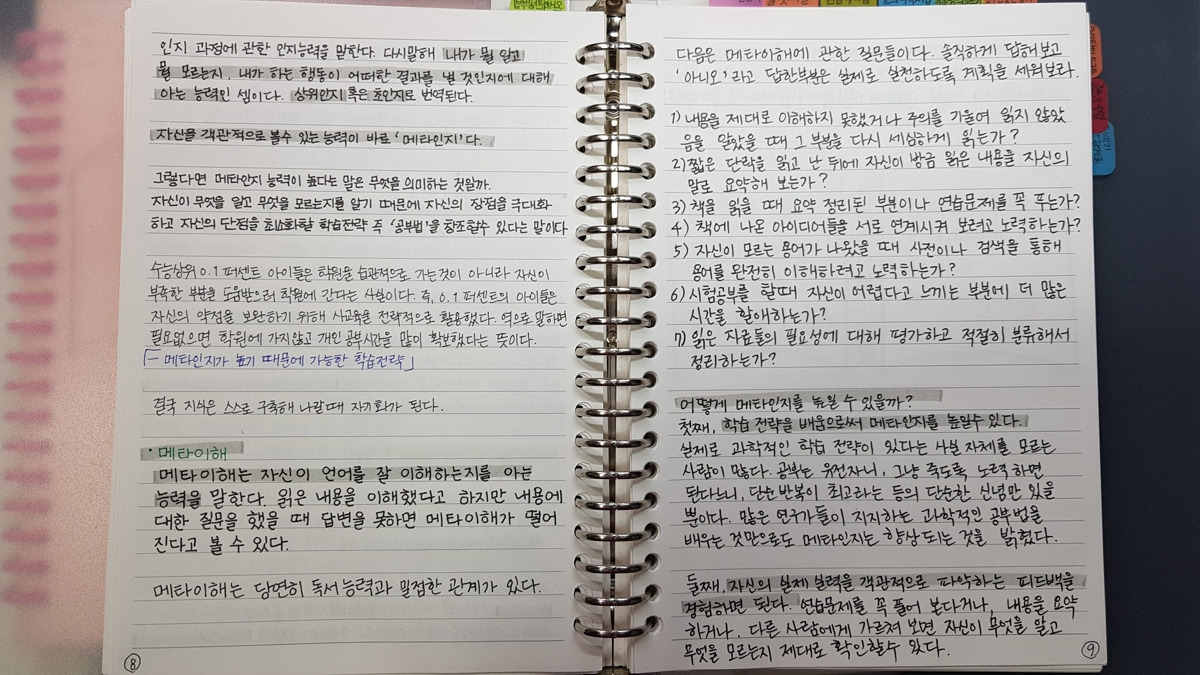 인지 과정에 관한 인지능력을 말한다. 다시말해 내가 뭘 알고
뭘 모르는지, 내가 하는 행동이 어떠한 결과를 낼 것인지에 대해
아는 능력인 셈이다. 상위인지 혹은 초인지로 번역된다.
자신을 객관적으로 볼수 있는 능력이 바로 '메타인지'다.
그렇다면 메타인지 능력이 높다는 말은 무엇을 의미하는 것일까.
자신이 무엇을 알고 무엇을 모르는지를 알기 때문에 자신의 장점을 극대화
하고 자신의 단점을 최소화할 학습전략 즉 '공부법'을 창조할수 있다는 말이다
수능상위 0.1 퍼센트 아이들은 학원을 습관적으로 가는것이 아니라 자신이
부족한 부분을 도움받으러 학원에 간다는 사실이다. 즉, 0.1 퍼센트의 아이들은
자신의 약점을 보완하기 위해 사교육을 전략적으로 활용했다. 역으로 말하면
필요없으면 학원에 가지않고 개인 공부시간을 많이 확보했다는 뜻이다.
「- 메타인지가 높기 때문에 가능한 학습전략」
결국 지식은 스스로 구축해 나갈때 자기화가 된다.
· 메타이해
메타이해는 자신이 언어를 잘 이해하는지를 아는
능력을 말한다. 읽은 내용을 이해했다고 하지만 내용에
대한 질문을 했을 때 답변을 못하면 메타이해가 떨어
진다고 볼 수 있다.
메타이해는 당연히 독서능력과 밀접한 관계가 있다.
8
다음은 메타이해에 관한 질문들이다. 솔직하게 답해보고
'아니오'라고 답한부분은 실제로 실천하도록 계획을 세워보라.
1) 내용을 제대로 이해하지 못했거나 주의를 기울여 읽지 않았
음을 알았을 때 그 부분을 다시 세심하게 읽는가?
2) 짧은 단락을 읽고 난 뒤에 자신이 방금 읽은 내용을 자신의
말로 요약해 보는가?
3) 책을 읽을 때 요약 정리된 부분이나 연습문제를 꼭 푸는가?
4) 책에 나온 아이디어들을 서로 연계시켜 보려고 노력하는가?
5) 자신이 모르는 용어가 나왔을 때 사전이나 검색을 통해
용어를 완전히 이해하려고 노력하는가?
6) 시험공부를 할때 자신이 어렵다고 느끼는 부분에 더 많은
시간을 할애하는가?
7) 읽은 자료들의 필요성에 대해 평가하고 적절히 분류해서
정리하는가?
어떻게 메타인지를 높일 수 있을까?
첫째, 학습 전략을 배움으로써 메타인지를 높일수 있다.
실제로 과학적인 학습 전략이 있다는 사실 자체를 모르는
사람이 많다. 공부는 유전자니, 그냥 죽도록 노력하면
된다느니, 단순반복이 최고라는 등의 단순한 신념만 있을
뿐이다. 많은 연구가들이 지지하는 과학적인 공부법을
배우는 것만으로도 메타인지는 향상되는 것을 밝혔다.
둘째, 자신의 실제 실력을 객관적으로 파악하는 피드백을
경험하면 된다. 연습문제를 꼭 풀어 본다거나, 내용을 요약
하거나, 다른 사람에게 가르쳐 보면 자신이 무엇을 알고
무엇을 모르는지 제대로 확인할수 있다.
9